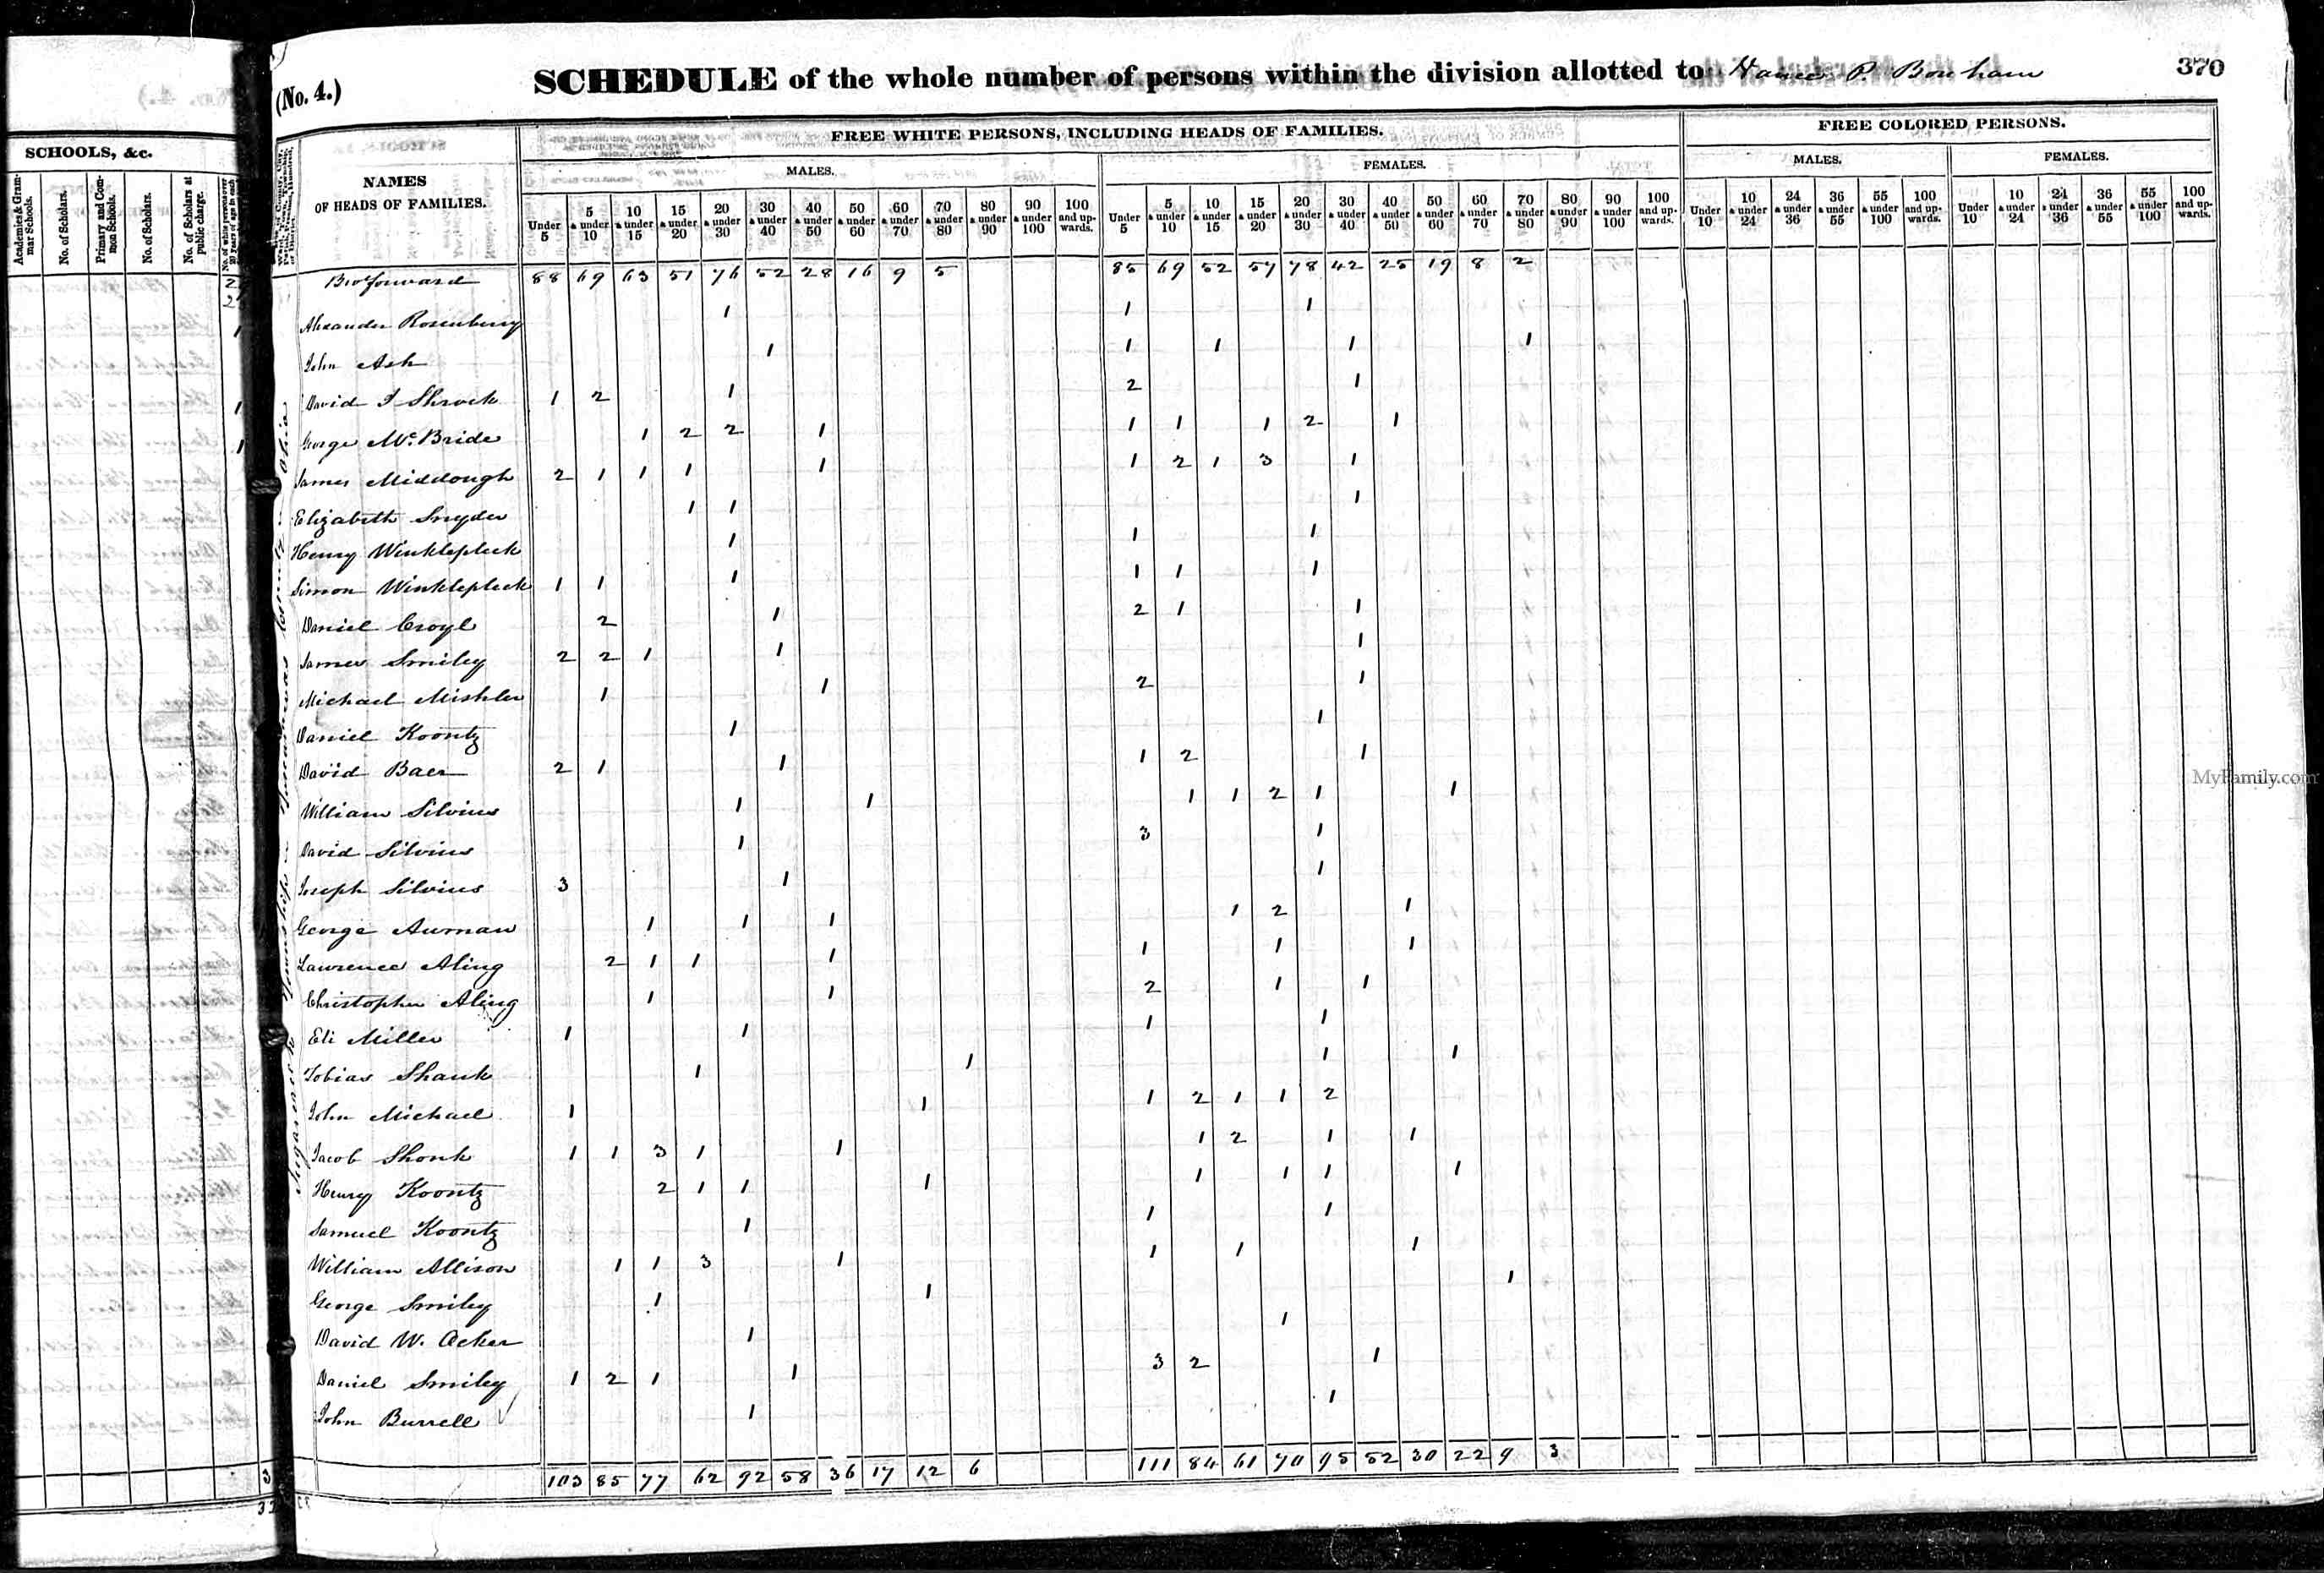 SCHOOLS, &c.
Academies & Grammar Schools.
No. of Scholars.
Primary and Common Schools.
No. of Scholars.
No. of Scholars at public charge.
(No. 4.)
SCHEDULE of the whole number of persons within the division allotted to P. Bonham
370
NAMES
OF HEADS OF FAMILIES.
FREE WHITE PERSONS, INCLUDING HEADS OF FAMILIES.
MALES.
Under 5
5 & under 10
10 & under 15
15 & under 20
20 & under 30
30 & under 40
40 & under 50
50 & under 60
60 & under 70
70 & under 80
80 & under 90
90 & under 100
100 and upwards.
FEMALES.
Under 5
5 & under 10
10 & under 15
15 & under 20
20 & under 30
30 & under 40
40 & under 50
50 & under 60
60 & under 70
70 & under 80
80 & under 90
90 & under 100
100 and upwards.
FREE COLORED PERSONS.
MALES.
Under 10
10 & under 24
24 & under 36
36 & under 55
55 & under 100
100 and upwards.
FEMALES.
Under 10
10 & under 24
24 & under 36
36 & under 55
55 & under 100
100 and upwards.
Bro forward 88 69 63 51 76 52 28 16 9 5 85 69 52 57 78 42 25 19 8 2
Alexander Rosenberry 1 1 1
John Ash 1 1 1 1 1
David I Shrock 1 2 1 2 1
George McBride 1 2 2 1 1 1 1 2 1
James Middough 2 1 1 1 1 1 2 1 3 1
Elizabeth Snyder 1 1 1
Henry Winklepleck 1 1 1
Simon Winklepleck 1 1 1 1 1 1
Daniel Croyl 2 1 2 1 1
James Smiley 2 2 1 1 1
Michael Mishler 1 1 2 1
Daniel Koontz 1 1
David Baer 2 1 1 1 2 1
William Silvius 1 1 1 1 2 1 1
David Silvius 1 3 1
Joseph Silvius 3 1 1
George Auman 1 1 1 1 2 1
Lawrence Aling 2 1 1 1 1 1 1
Christopher Aling 1 1 2 1 1
Eli Miller 1 1 1 1
Tobias Shank 1 1 1 1
John Michael 1 1 1 2 1 1 2
Jacob Shonk 1 1 3 1 1 1 2 1 1
Henry Koontz 2 1 1 1 1 1 1 1
Samuel Koontz 1 1 1
William Allison 1 1 3 1 1 1 1
George Smiley 1 1 1
David W. Acker 1 1
Daniel Smiley 1 2 1 1 3 2 1
John Burrell 1 1
103 85 77 62 92 58 36 17 12 6 111 84 61 70 95 52 30 22 9 3
MyFamily.com